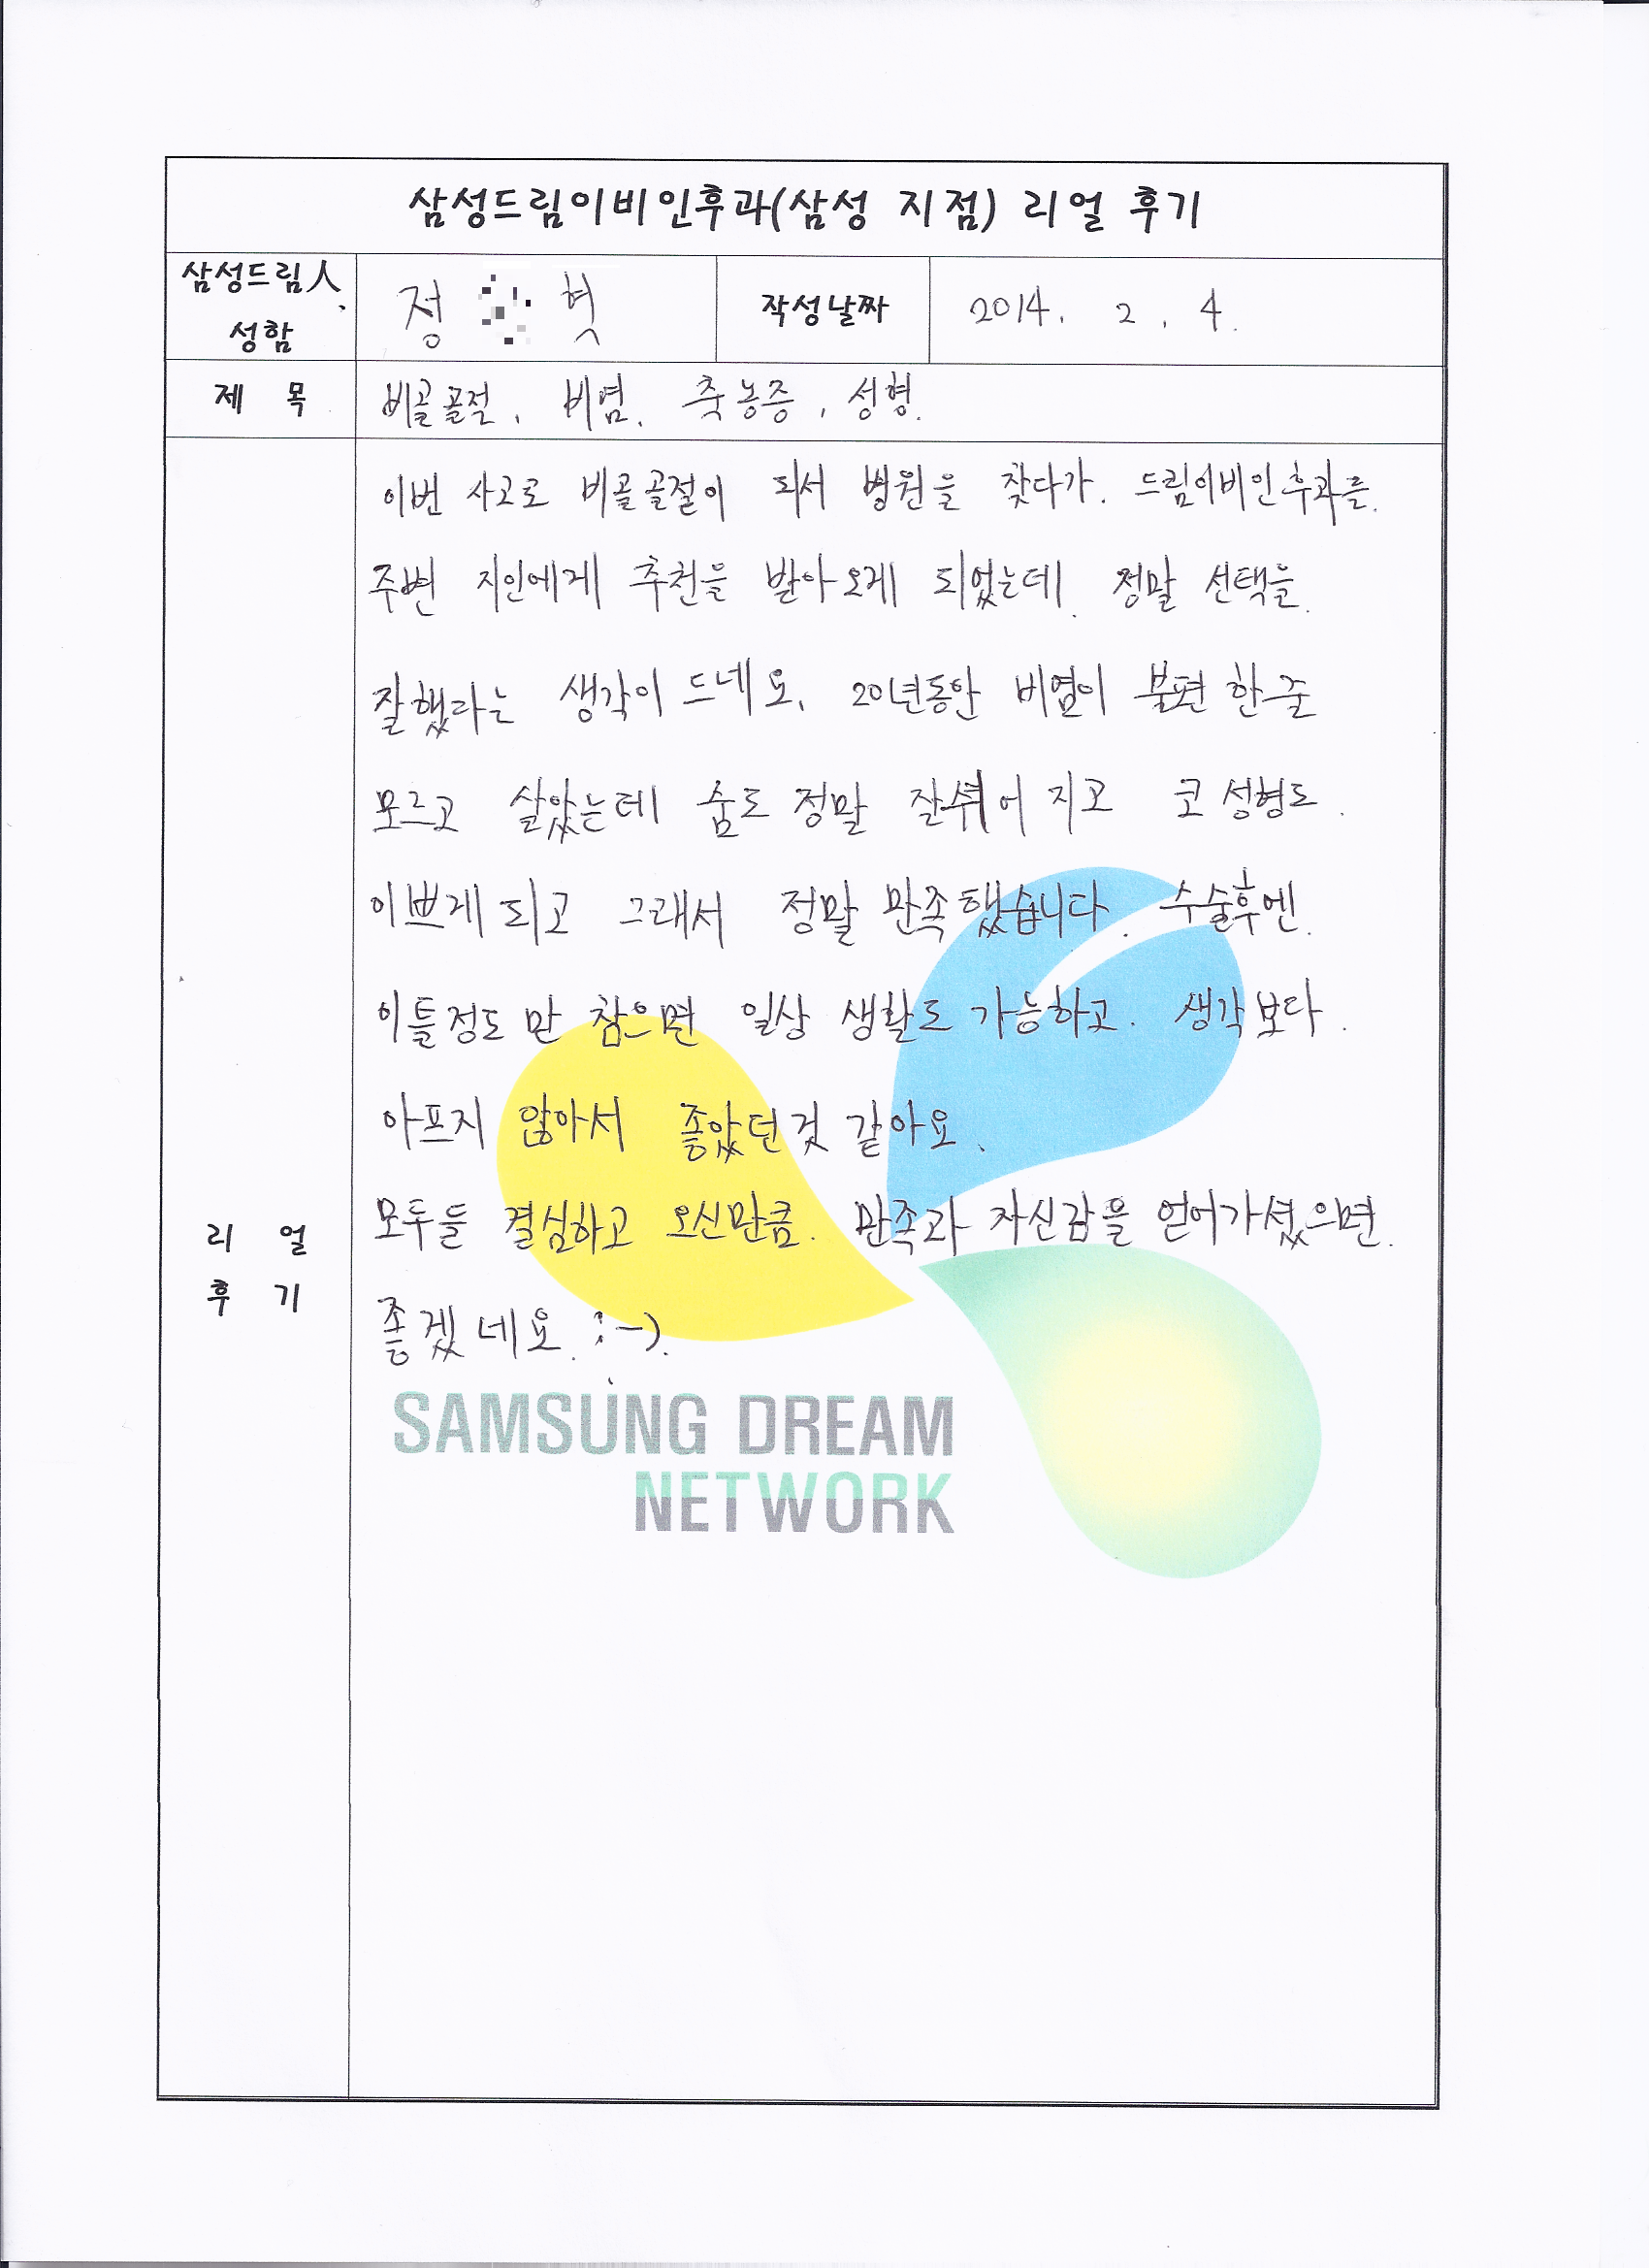 삼성드림이비인후과(삼성 지점) 리얼 후기
삼성드림人 성함
정 혁
작성날짜
2014. 2. 4.
제 목
비골골절, 비염. 축농증, 성형.
리 얼 후 기
이번 사고로 비골골절이 되서 병원을 찾다가. 드림이비인후과를.
주변 지인에게 추천을 받아오게 되었는데. 정말 선택을.
잘했다는 생각이 드네요. 20년동안 비염이 불편 한줄
모르고 살았는데 숨도 정말 잘쉬어 지고 코 성형도.
이쁘게 되고 그래서 정말 만족했습니다. 수술후엔.
이틀정도만 참으면 일상 생활도 가능하고. 생각보다.
아프지 않아서 좋았던것 같아요.
모두들 결심하고 오신만큼. 만족과 자신감을 얻어가셨으면.
좋겠네요. :-).
SAMSUNG DREAM
NETWORK